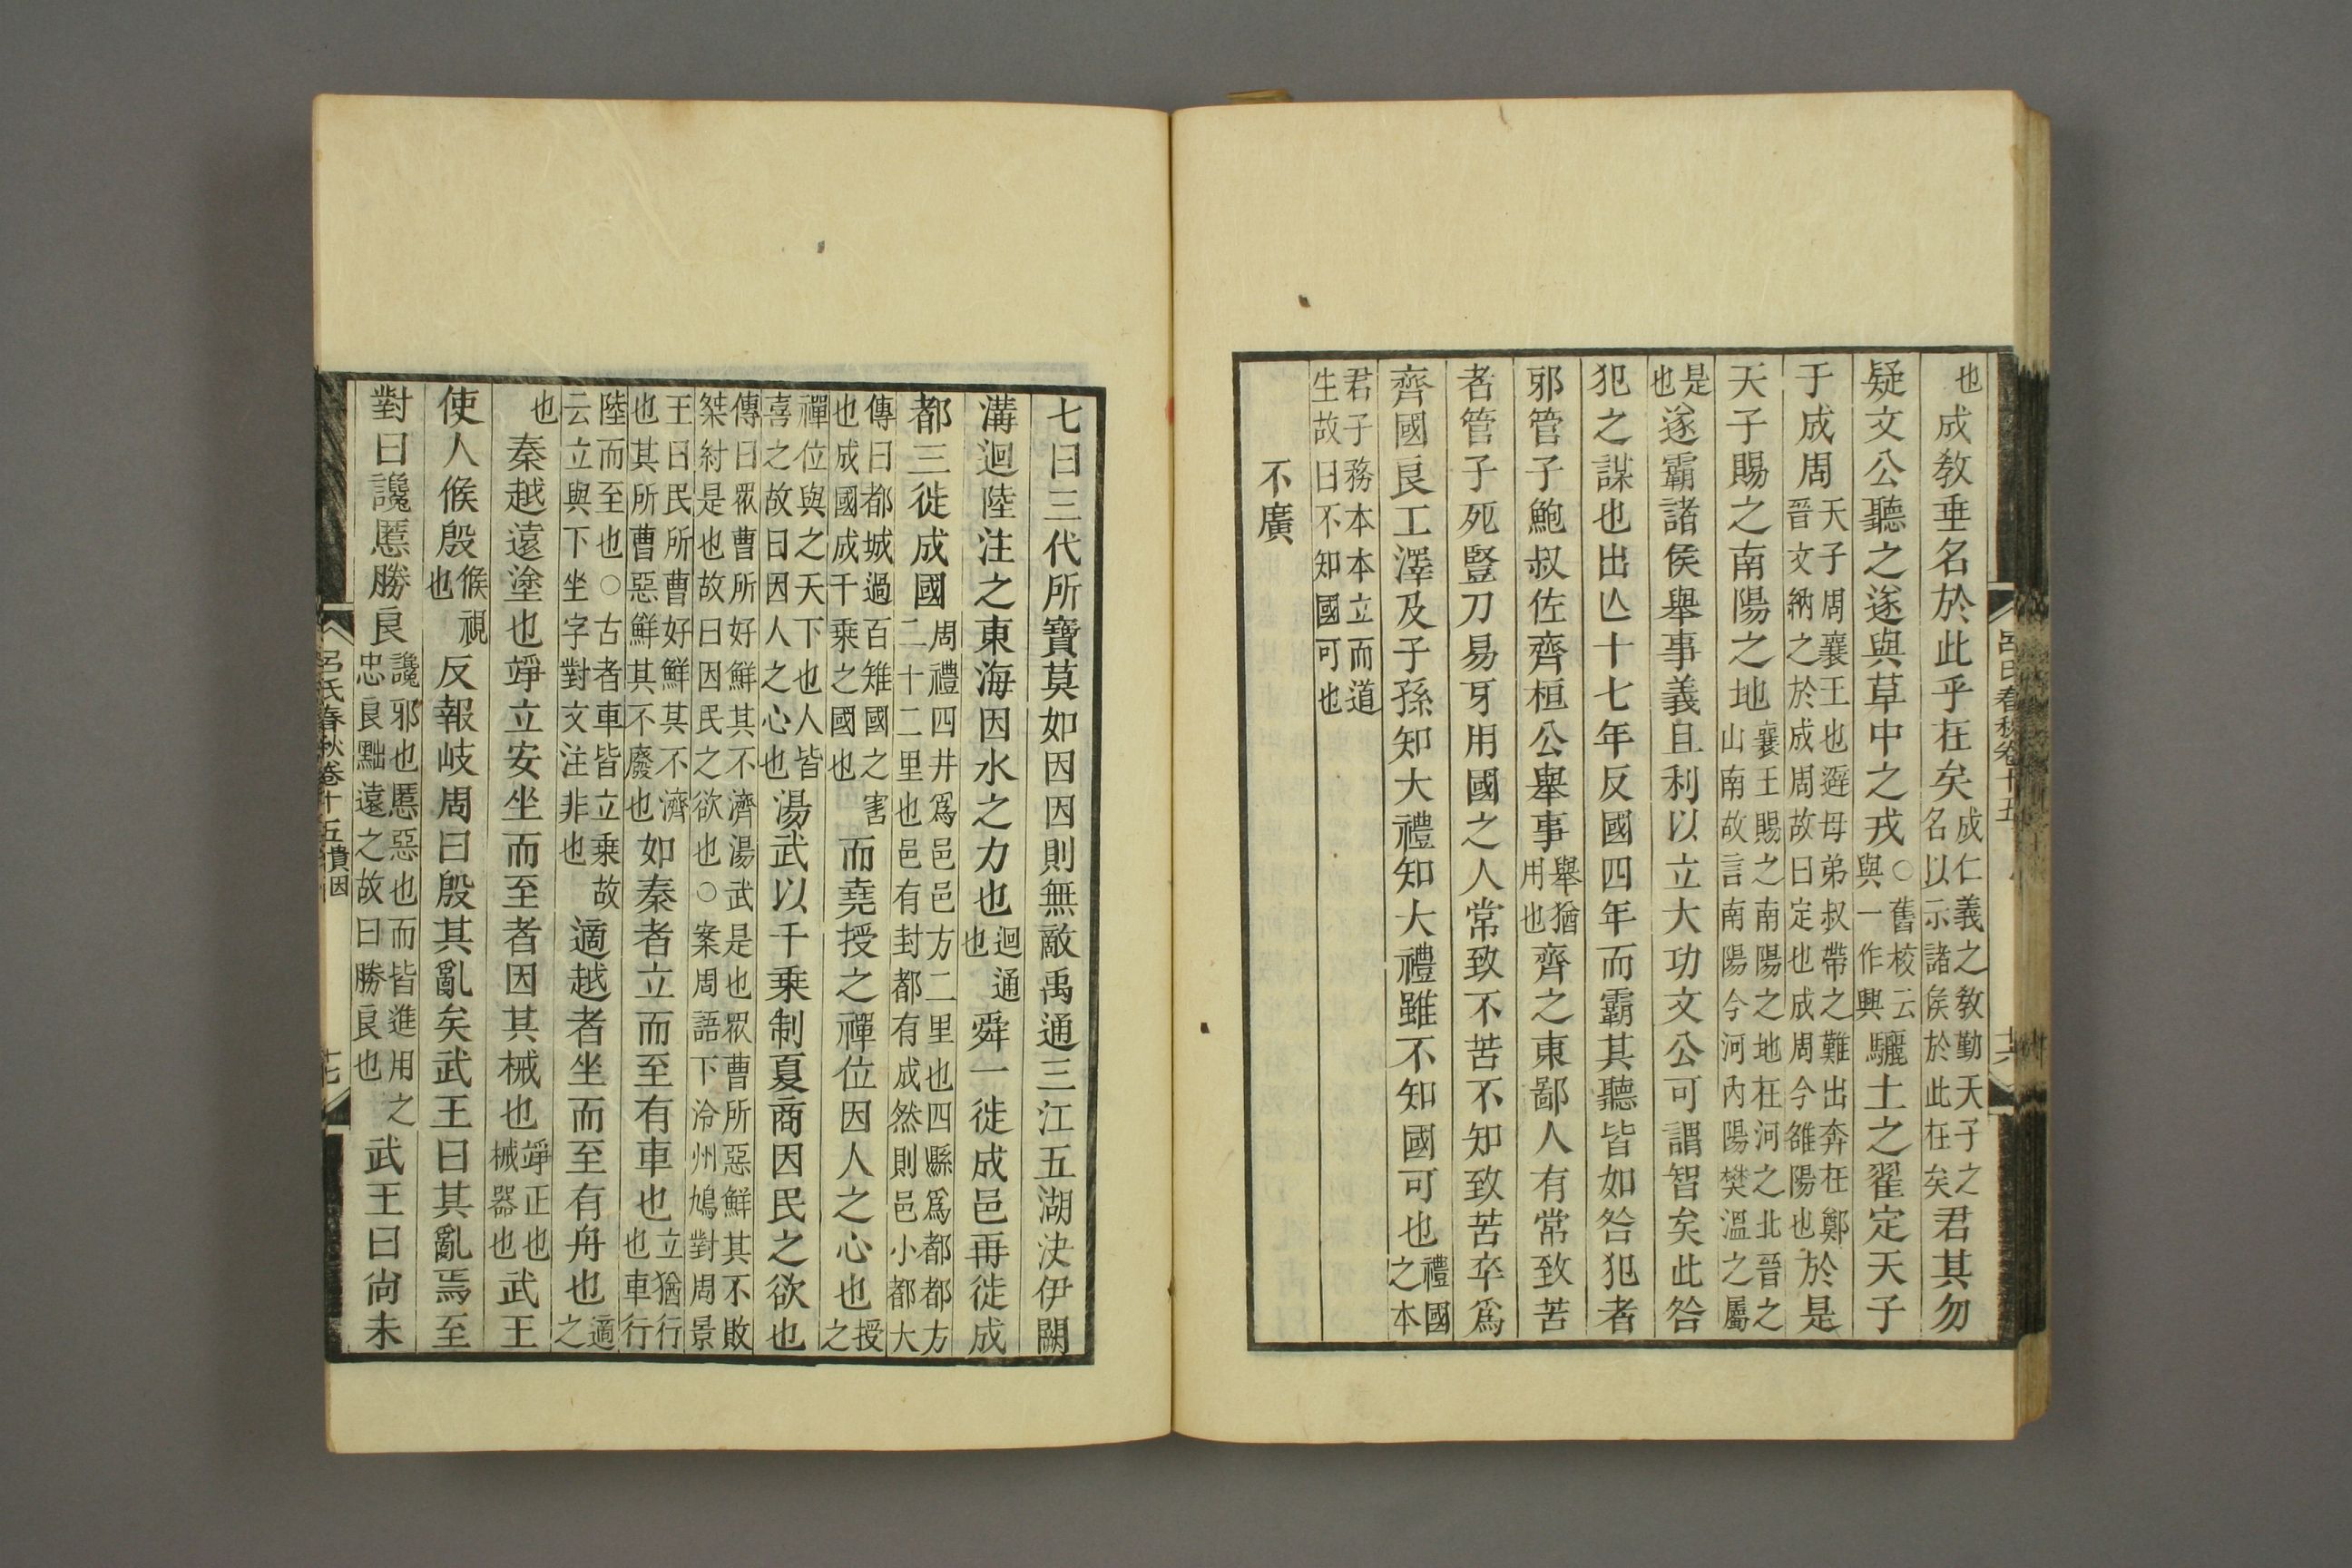 也成敎垂名於此乎在矣成仁義之敎勤天子之名以示諸侯於此在矣君其勿
疑文公聽之遂與草中之戎○舊校云與一作興驪土之翟定天子
于成周天子周襄王也避母弟叔帶之難出奔在鄭晉文納之於成周故曰定也成周今雒陽也於是
天子賜之南陽之地襄王賜之南陽之地在河之北晉之山南故言南陽今河內陽樊溫之屬
是也遂霸諸侯舉事義且利以立大功文公可謂智矣此咎
犯之謀也出亾十七年反國四年而霸其聽皆如咎犯者
邪管子鮑叔佐齊桓公舉事舉猶用也齊之東鄙人有常致苦
者管子死豎刀易牙用國之人常致不苦不知致苦卒爲
齊國良工澤及子孫知大禮知大禮雖不知國可也禮國之本
君子務本本立而道生故曰不知國可也
不廣
呂氏春秋卷十五
十六
七曰三代所寶莫如因因則無敵禹通三江五湖決伊闕
溝迴陸注之東海因水之力也迴通也舜一徙成邑再徙成
都三徙成國周禮四井爲邑邑方二里也四縣爲都都方二十二里也邑有封都有成然則邑小都大
傳曰都城過百雉國之害也成國成千乘之國也而堯授之禪位因人之心也授之
禪位與之天下也人皆喜之故曰因人之心也湯武以千乘制夏商因民之欲也
傳曰衆曹所好鮮其不濟湯武是也衆曹所惡鮮其不敗桀紂是也故曰因民之欲也○案周語下泠州鳩對周景
王曰民所曹好鮮其不濟也其所曹惡鮮其不廢也如秦者立而至有車也立猶行也車行
陸而至也○古者車皆立乘故云立與下坐字對文注非也適越者坐而至有舟也適之
也秦越遠塗也竫立安坐而至者因其械也竫正也械器也武王
使人候殷候視也反報岐周曰殷其亂矣武王曰其亂焉至
對曰讒慝勝良讒邪也慝惡也而皆進用之忠良黜遠之故曰勝良也武王曰尙未
呂氏春秋卷十五貴因
十七